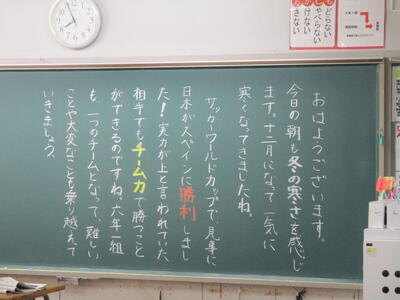 おはようございます。
今日の朝も冬の寒さを感じ
ます。十二月になって一気に
寒くなってきましたね。
サッカーワールドカップで、見事に
日本がスペインに勝利しまし
た！実力が上と言われていた
相手でもチーム力で勝つこと
ができるのですね。六年一組
も、一つのチームとなって、難しい
ことや大変なことも乗り越えて
いきましょう。
おさない
かけない
しゃべらない
もどらない